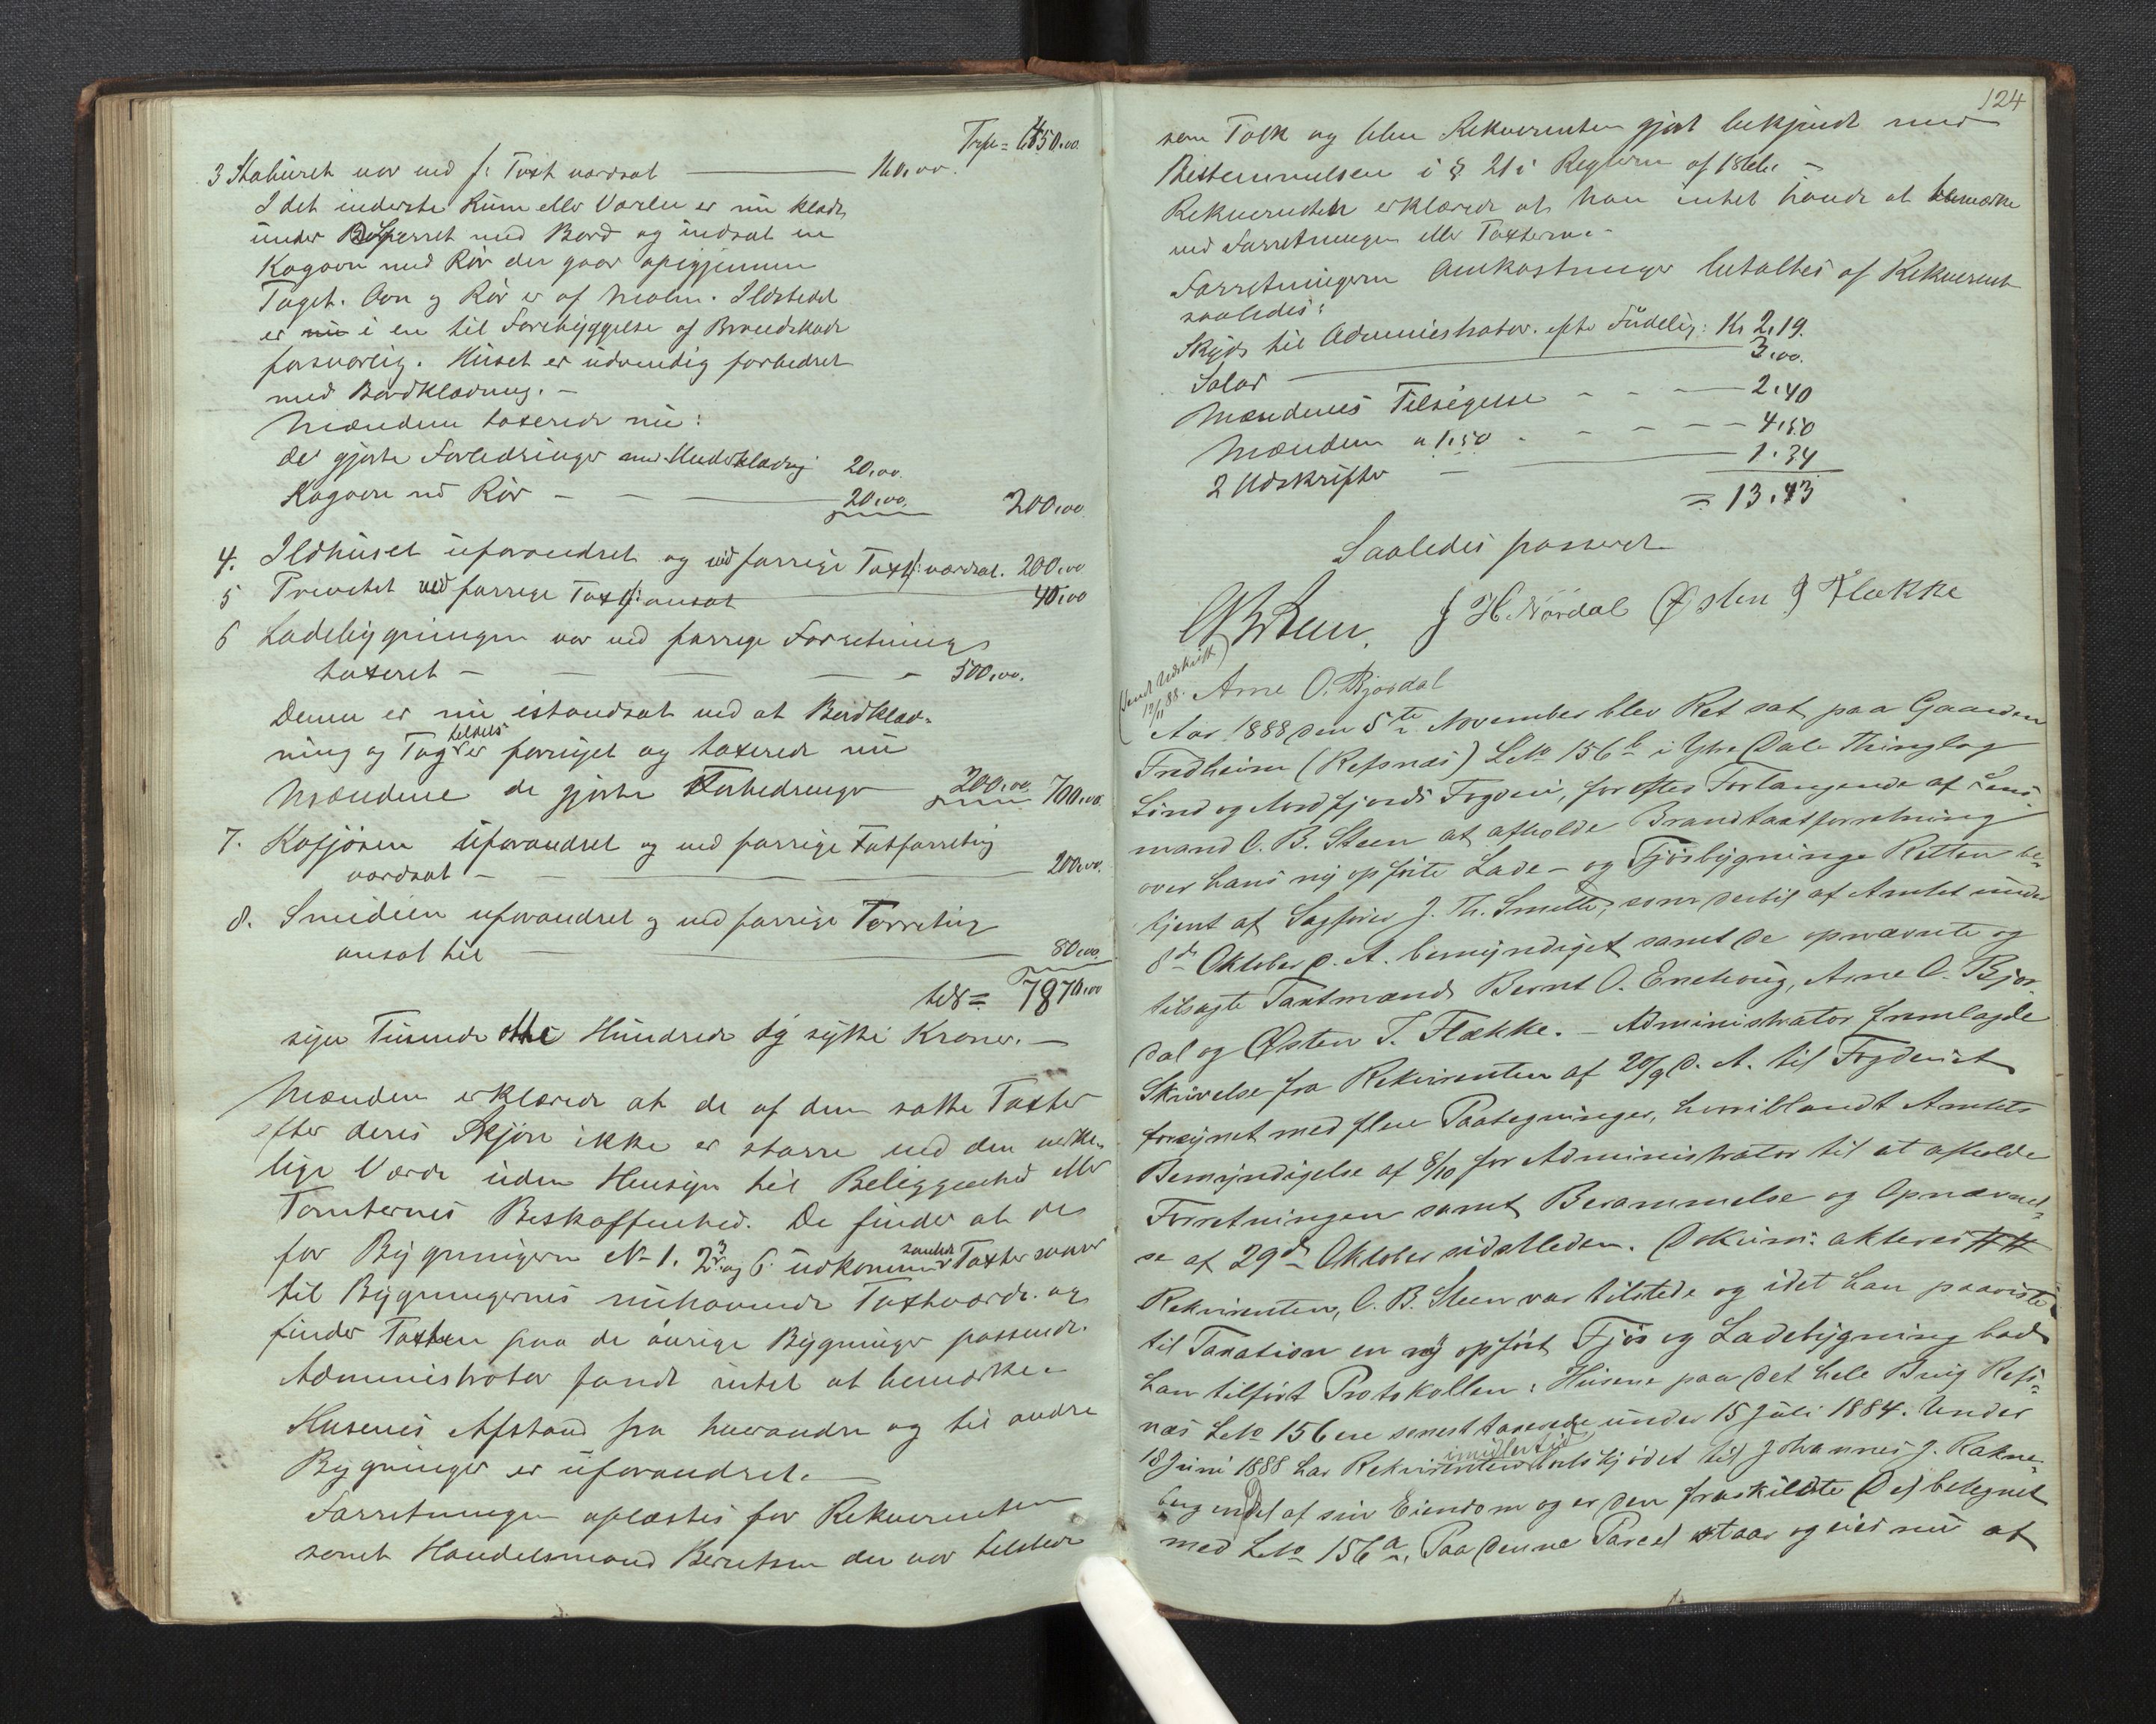 Trpt = 6450.00
3 Stabúret var ved f: Taxt værdsat — 160,00.
I det inderste Rúm eller Værelse er nú klædt
únder Sperret med Bord og indsat en
Kogovn med Rör der gaar opigjennem
Taget. Ovn og Rör er af Malm. Ildstedet
er i en til Forebyggelse af Brandskade
forsvarlig. Húset er údvendig forbedret
med Bordklædning. —
Mændene taxerede nú:
de gjorte Forbedringer med Underklædng 20,00.
Kogovn med Rör — 20,00. 200,00
4. Ildhúset úforandret og ved forrige Taxtf: værdsat. 200,00
5 Privetet ved forrige Taxtf: ansat 40,00
6 Ladebygningen var ved forrige Forretning
taxeret — 500,00.
Denne er nú istandsat med at Bordklæd-
ning og Tag er tildels fornyet og taxerede nú
Mændene de gjorte Forbedringer 200,00 700,00.
7. Kofjösen úforandret og ved forrige Taxtforretng
værdsat — 200,00.
8. Smidien uforandret og ved forrige Forretng
ansat til — 80,00.
tils = 7870,00
syv Túsinde otte Húndrede og sytti Kroner. —
Mændene erklærede at de af dem satte Taxter
efter deres Skjön ikke er större end den virke-
lige Værdi úden Hensyn til Beliggenhed eller
Tomternes Beskaffenhed. De finder at de
for Bygningerne No 1. 2. 3 og 6 údkomme samlede Taxter svarer
til Bygningernes núhavende Taxtværdi og
finder Taxten paa de övrige Bygninger passende.
Administrator fandt intet at bemærke.
Húsenes Afstand fra hverandre og til andre
Bygninger er úforandret. —
Forretningen oplæstes for Rekvirenten
samt Handelsmand Berntsen der var tilstede
124
som Tolk og blev Rekvirenten gjort bekjendt med
Bestemmelsen i § 21 i Reglerne af
Rekvirenten erklærede at han intet havde at bemærke
ved Forretningen eller Taxterne. —
Forretningens Omkostninger betaltes af Rekvirent
saaledes:
Skyds til Administrator. efter Fúdelig: Kr 2.19.
Salær — 3,00.
Mændenes Tilsigelse — 2.40
Mændene a 1.50 — 4.50
2 Udskrifter — 1.34
= 13.43
Saaledes passeret
OBSteen. J H. Nördal Østen J Flække
Arne O. Bjordal
(Sendt Udskrift
12/11 88.)
Aar 1888 den 5te November blev Ret sat paa Gaarden
Fredheim (Refsnæs) LNo 156b i Ytre Dale Thinglag
Sönd og Nordfjords Fogderi, for efter Forlangende af Lens-
mand O. B. Steen at afholde Brandtaxtforretning
over hans ny opförte Lade- og Fjösbygninge Retten be-
tjent af Sagförer J. Th. Smitt, som dertil af Amtet únder
8de Oktober d. A. bemyndiget samt de opnævnte og
tilsagte Taxtmænd Bernt O. Eneboug, Arne O. Bjor-
dal og Østen J. Flække. — Administrator fremlagde
Skrivelse fra Rekvirenten af 20/9 d. A. til Fogderiet
forsynet med flere Paategninger, hvoriblandt Amtets
Bemyndigelse af 8/10 for Administrator til at afholde
Forretningen samt Berammelse og Opnævnel-
se af 29de Oktober sidstleden. Dokúm: akteres ##
Rekvirenten, O. B. Steen var tilstede og idet han paaviste
til Taxation en ny opfört Fjös og Ladebygning bad
han tilfört Protokollen: Húsene paa det hele Brúg Refs-
næs LNo 156 ere senest taxerede únder 15 Júli 1884. Under
18 Júni 1888 har Rekvirenten imidlertid údskjödet til Johannes J. Rakne-
berg en Del af sin Eiendom og er den fraskildte Del betegnet
med LNo 156a. Paa denne Parcel staar og eies nú af